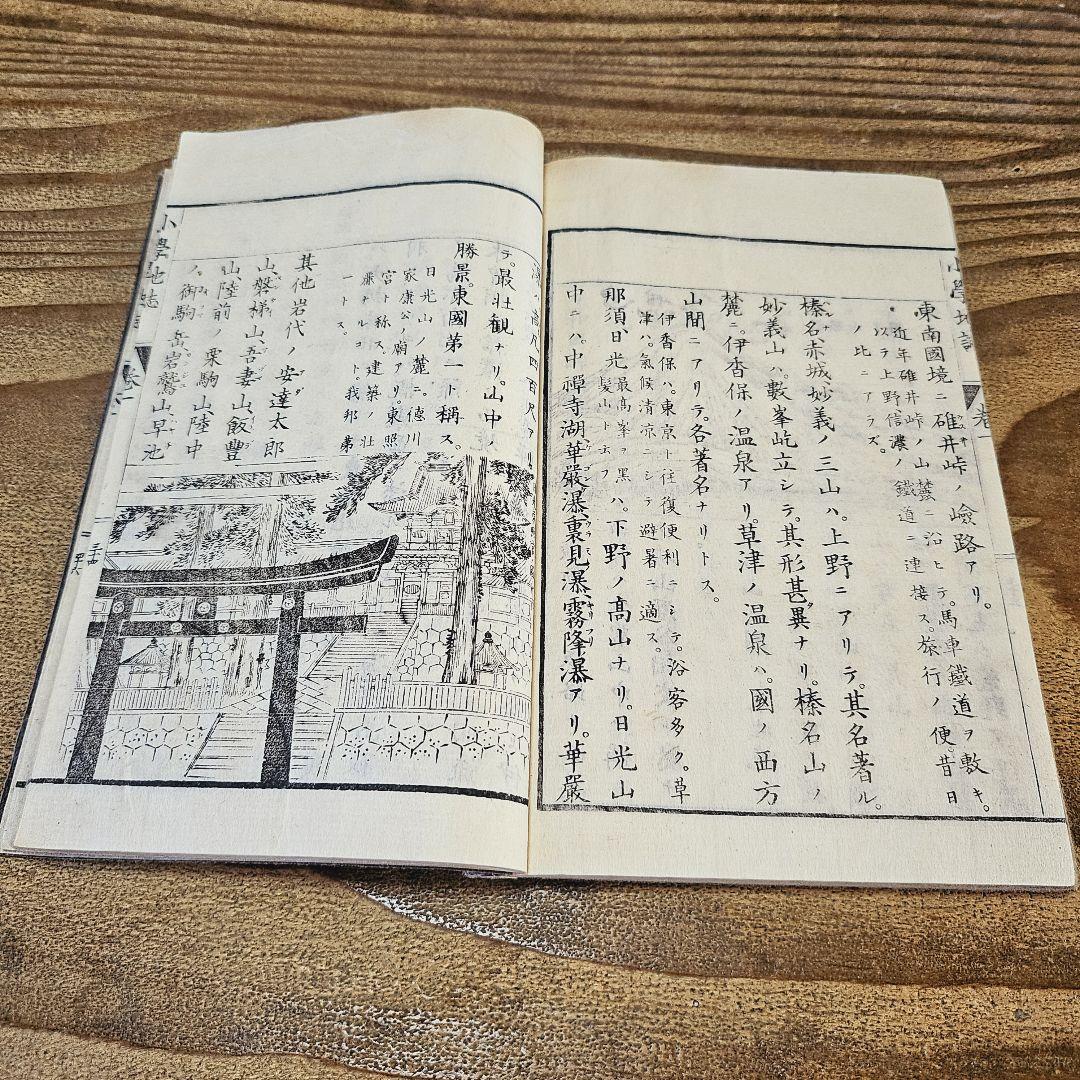 東南國境ニ碓井峠ノ嶮路アリ。
近年碓井峠ノ山麓ニ沿ヒテ。馬車鐵道ヲ敷キ。
以テ上野信濃ノ鐵道ニ連接ス。旅行ノ便昔日
ノ比ニアラズ。
榛名、赤城、妙義ノ三山ハ。上野ニアリテ。其名著ル。
妙義山ハ。數峯屹立シテ。其形甚異ナリ。榛名山ノ
麓ニ。伊香保ノ温泉アリ。草津ノ温泉ハ。國ノ西方
山間ニアリテ。各著名ナリトス。
伊香保ハ。東京ト往復便利ニシテ。浴客多ク。草
津ハ。氣候清凉ニシテ避暑ニ適ス。
那須、日光最高峯ヲ黒髮山ト云フハ。下野ノ髙山ナリ。日光山
中ニハ。中禪寺湖、華嚴瀑、裏見瀑、霧降瀑アリ。華嚴
テ。最壮観ナリ。山中ノ
勝景。東國第一ト稱ス。
日光山ノ麓ニ。德川
家康公ノ廟アリ東照
宮ト称ス。建築ノ壮
麗ナルコト。我邦第
一トス。
其他岩代ノ安達太郎
山、磐梯山、吾妻山、飯豐
山、陸前ノ栗駒山、陸中
ノ御駒岳、岩鷲山、早池
小學地誌
卷一